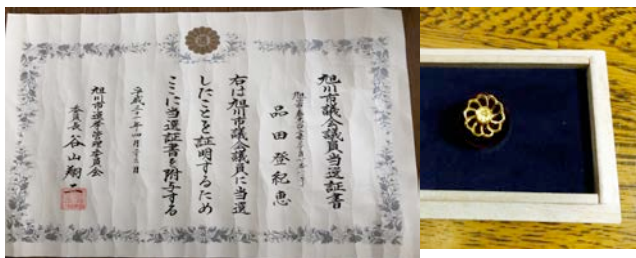 旭川市議会議員当選証書
品田登紀恵
右は旭川市議会議員に当選
したことを証明するため
ここに当選証書を附与する
平成三十一年四月
旭川市選挙管理委員会
委員長 谷山翔二